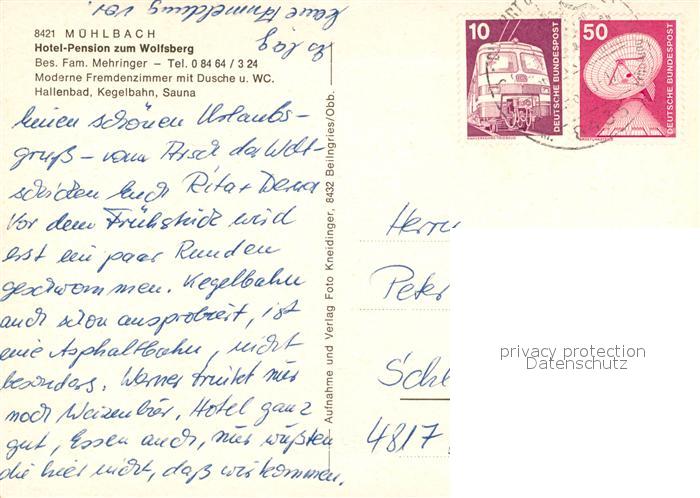 8421 MÜHLBACH
Hotel-Pension zum Wolfsberg
Bes. Fam. Mehringer – Tel. 0 84 64 / 3 24
Moderne Fremdenzimmer mit Dusche u. WC.
Hallenbad, Kegelbahn, Sauna
keine Anmeldung vor.
einen schönen Urlaubs-
gruß – vom Arsch der Welt –
schicken Euch Rita +
Vor dem Frühstück wird
erst ein paar Runden
geschwommen. Kegelbahn
auch schon ausprobiert, ist
eine Asphaltbahn, nicht
besonders. Werner trinkt nur
noch Weizenbier. Hotel ganz
gut, Essen auch, nur wußten
die hier nicht, daß wir kommen.
Aufnahme und Verlag Foto Kneidinger, 8432 Beilngries/Obb.
10
DEUTSCHE BUNDESPOST
50
DEUTSCHE BUNDESPOST
Herrn
Peter
4817
privacy protection
Datenschutz